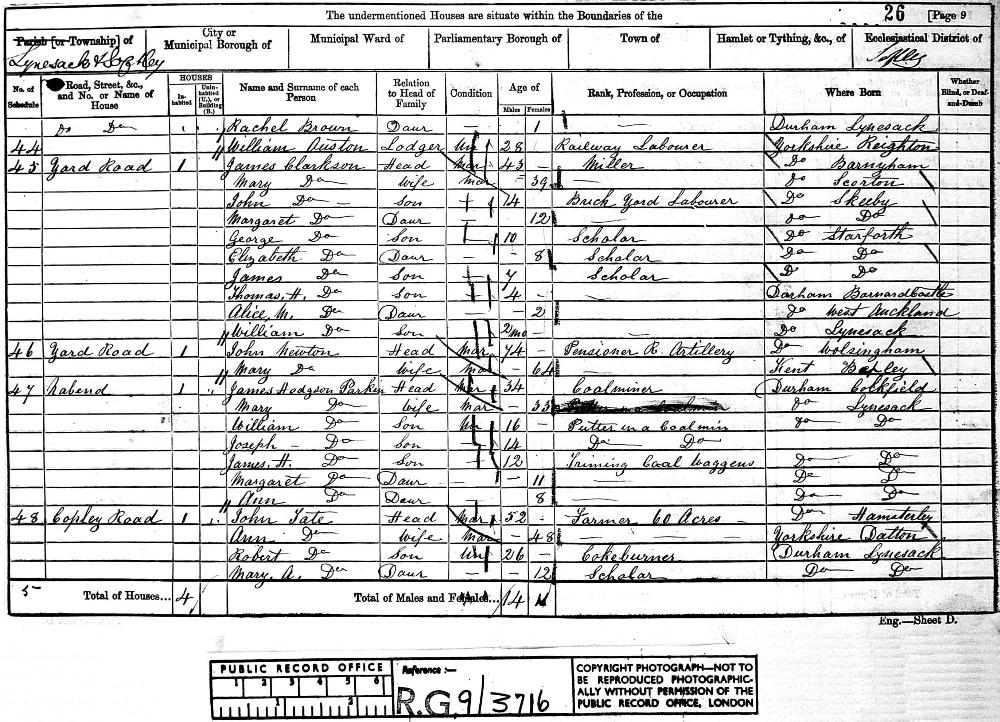 The undermentioned Houses are situate within the Boundaries of the
26 [Page 9
Parish [or Township] of City or Municipal Borough of Municipal Ward of Parliamentary Borough of Town of Hamlet or Tything, &c., of Ecclesiastical District of
Lynesack &
No. of Schedule Road, Street, &c., and No. or Name of House HOUSES Inhabited Uninhabited (U.), or Building (B.) Name and Surname of each Person Relation to Head of Family Condition Age of Males Females Rank, Profession, or Occupation Where Born Whether Blind, or Deaf-and-Dumb
Do Do Rachel Brown Daur — 1 — Durham Lynesack
44 William Auston Lodger Un 28 Railway Labourer Yorkshire Reighton
45 Yard Road 1 James Clarkson Head Mar 43 - Miller Do Barnyham
Mary Do Wife Mar - 39 — Do Scorton
John Do Son 14 Brick Yard Labourer Do Skeeby
Margaret Do Daur — 12 — Do Do
George Do Son 10 Scholar Do Starforth
Elizabeth Do Daur - - 8 Scholar Do Do
James Do Son 7 Scholar Do Do
Thomas. H. Do Son 4 - Durham Barnard Castle
Alice M. Do Daur — - 2 — Do West Auckland
William Do Son 2 mo — Do Lynesack
46 Yard Road 1 John Newton Head Mar 74 - Pensioner R. Artillery Do Wolsingham
Mary Do Wife Mar - 64 — Kent
47 Nabend 1 James Hodgson Parkin Head Mar 34 Coalminer Durham Cockfield
Mary Do Wife Mar - 33 Do Lynesack
William Do Son Un 16 - Putter in a Coalmin Do Do
Joseph Do Son 14 Do Do
James. H. Do Son 12 Triming Coal Waggens Do Do
Margaret Do Daur - 11 — Do Do
Ann Do Daur 8 — Do Do
48 Copley Road 1 John Tate Head Mar 52 - Farmer 60 Acres - Do Hamsterley
Ann Do Wife Mar - 48 — Yorkshire Datton
Robert Do Son Un 26 - Cokeburner Durham Lynesack
Mary. A. Do Daur — - 12 Scholar Do Do
5 Total of Houses... 4 Total of Males and Females... 14
Eng.—Sheet D.
PUBLIC RECORD OFFICE
1 2 3 4 5 6
1 2
Reference :-
R.G. 9/3716
COPYRIGHT PHOTOGRAPH—NOT TO
BE REPRODUCED PHOTOGRAPHIC-
ALLY WITHOUT PERMISSION OF THE
PUBLIC RECORD OFFICE, LONDON